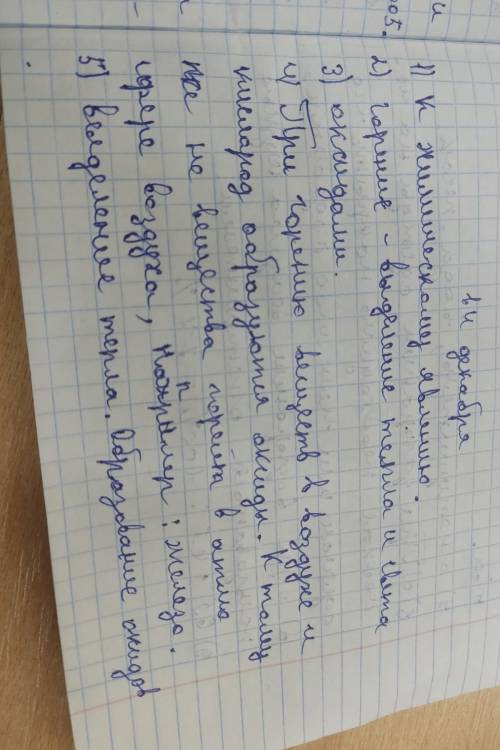 декабря
1) К химическому явлению.
2) горение - выделение тепла и света
3) оксидами.
4) При горению веществ в воздухе и
кислород образуются оксиды. К тому
же не вещества в атмо
сфере воздуха, например: железо.
5) тепла. Образование оксидов